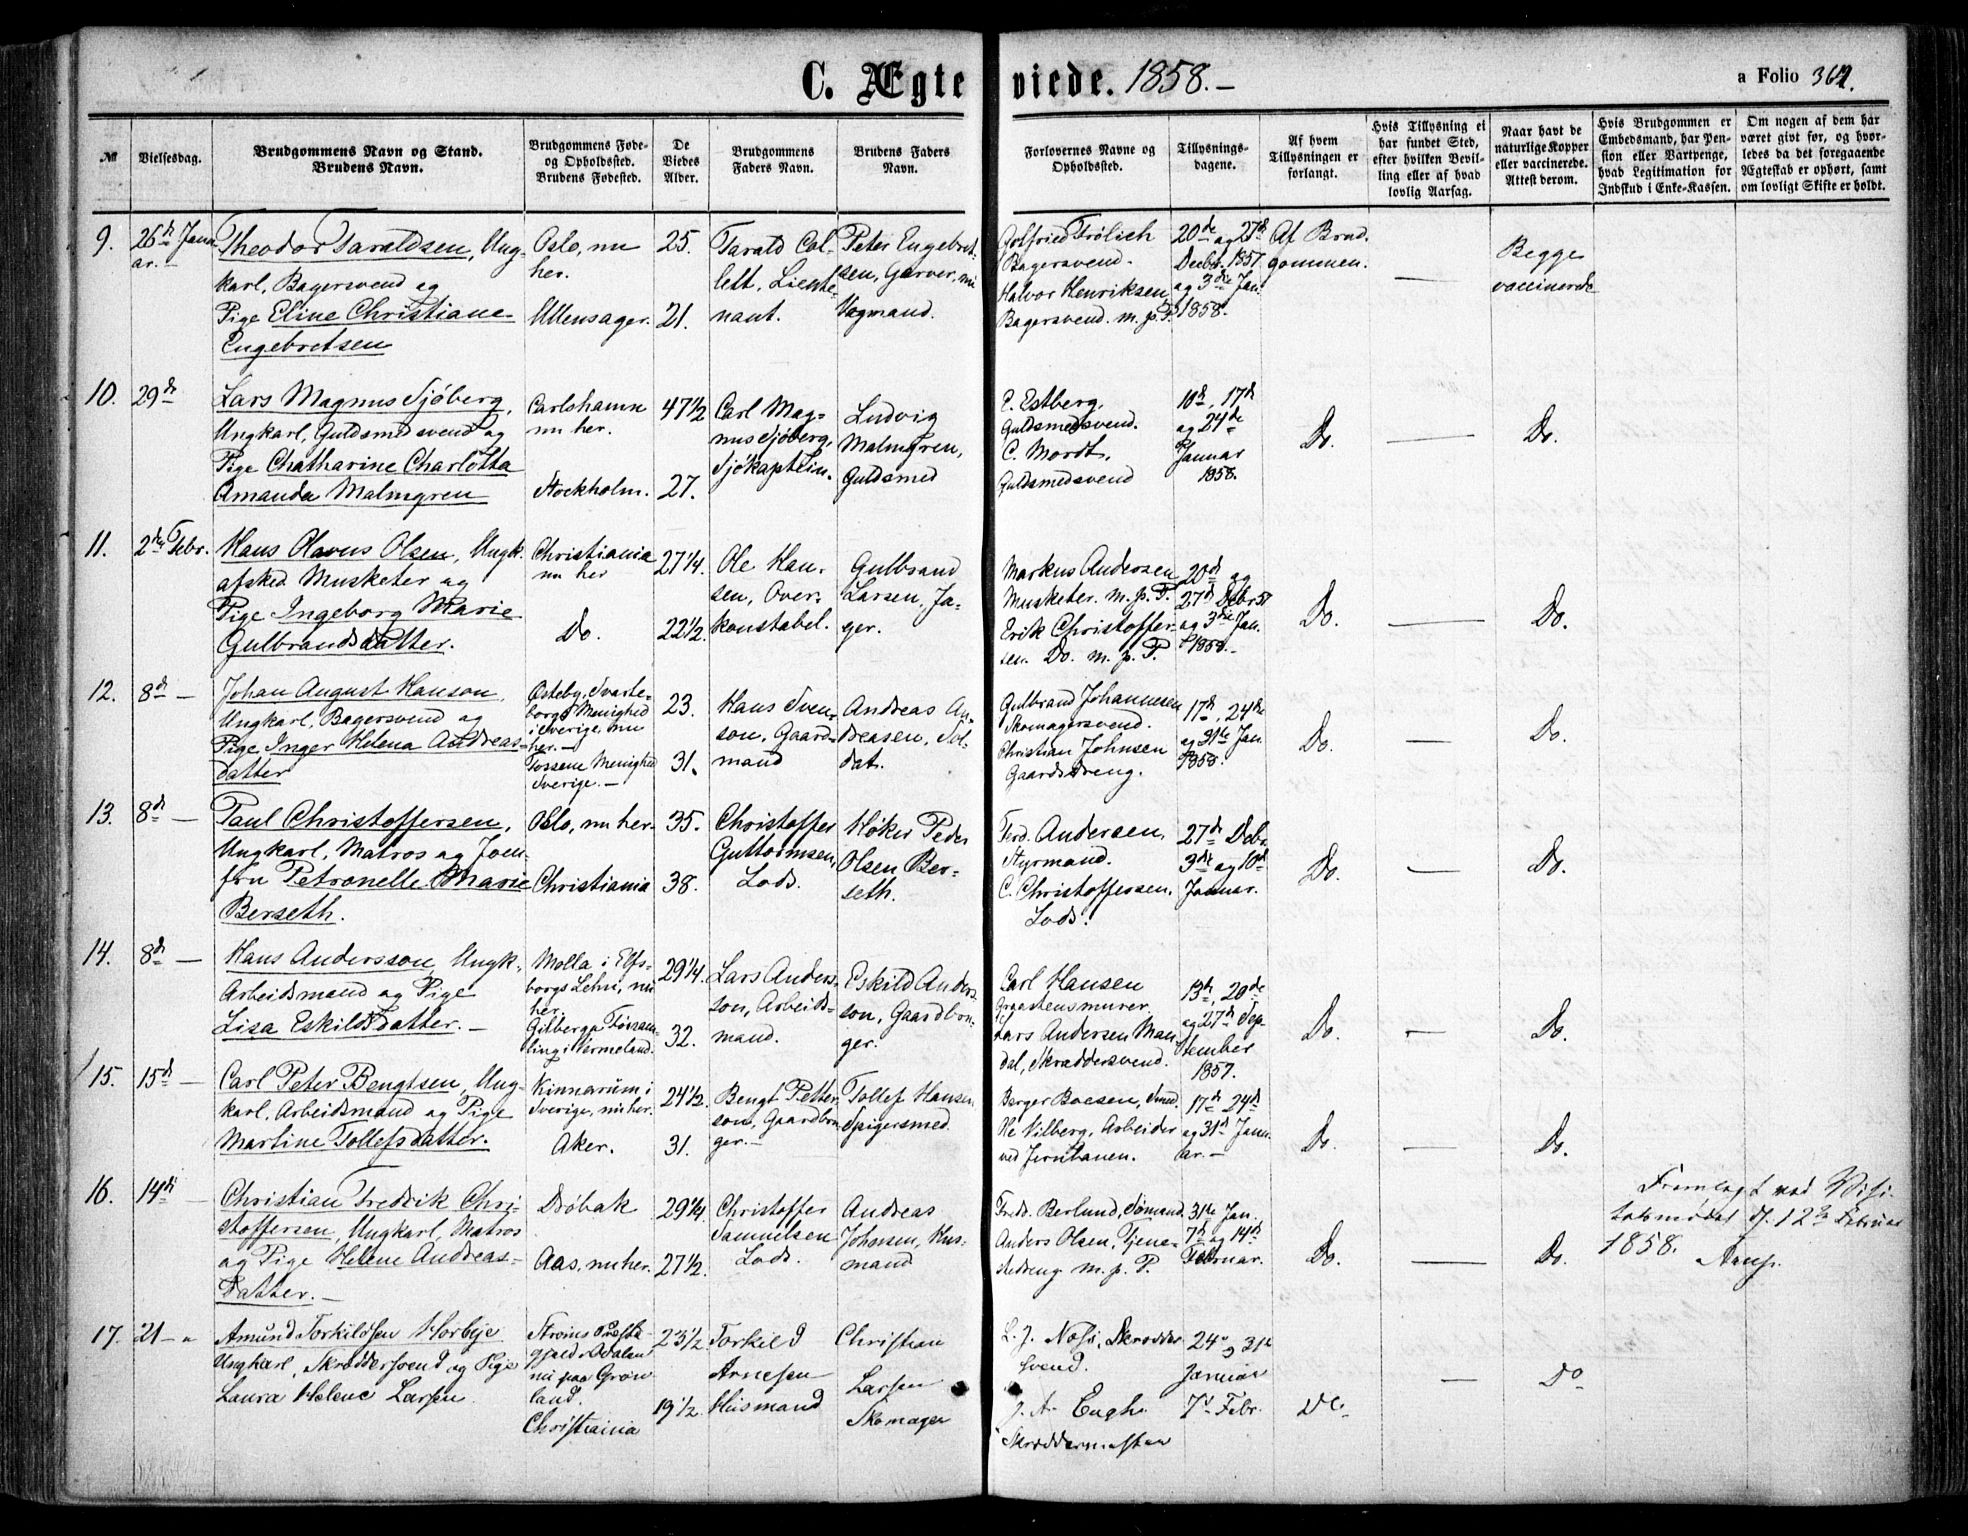 C. Ægteviede. 1858.—
a Folio 361.
№
Vielsesdag.
Brudgommens Navn og Stand.
Brudens Navn.
Brudgommens Føde-
og Opholdssted.
Brudens Fødested.
De
Viedes
Alder.
Brudgommens
Faders Navn.
Brudens Faders
Navn.
Forlovernes Navne og
Opholdssted.
Tillysnings-
dagene.
Af hvem
Tillysningen er
forlangt.
Hvis Tillysning ei
har fundet Sted,
efter hvilken Bevil-
ling eller af hvad
lovlig Aarsag.
Naar havt de
naturlige Kopper
eller vaccinerede.
Attest derom.
Hvis Brudgommen er
Embedsmand, har Pen-
sion eller Vartpenge,
hvad Legitimation for
Indskud i Enke-Kassen.
Om nogen af dem har
været givt før, og hvor-
ledes da det foregaaende
Ægteskab er ophørt, samt
om lovligt Skifte er holdt.
9.
26de Janu
ar.—
Theodor Taraldsen, Ung-
karl, Bagersvend og
Pige Eline Christiane
Engebretsen
Oslo, nu
her.
Ullensager.
25.
21.
Tarald Col-
lett, Lieute-
nant.
Peter Engebret-
sen, Garver, nu
Vogmand.
Gotfried Frölich
Bagersvend.
Halvor Henriksen
Bagersvend. m. p. P.
20de og 27de
Decbr. 1857
og 3die Jan.
1858.
Af Brud-
gommen.
—
Begge
vaccinerede
10.
29de
Lars Magnus Sjöberg,
Ungkarl, Guldsmedsvend og
Pige Chatharine Charlotta
Amanda Malmgren
Carlshamn
nu her.
Stockholm.
47½
27.
Carl Mag-
nus Sjöberg,
Sjökaptein.
Ludvig
Malmgren,
Guldsmed
C. Estberg,
Guldsmedsvend.
C. Mordt,
Guldsmedsvend
10de, 17de
og 24de
Januar
1858.
Do.
—
Do.
11.
2den Febr.
Hans Olavus Olsen, Ungk.
afsked Musketer og
Pige Ingeborg Marie
Gulbrandsdatter.
Christiania
nu her
Do.
27¼.
22½.
Ole Han-
sen, Over-
konstabel.
Gulbrand
Larsen, Jæ-
ger.
Markus Andersen
Musketer. m. p. P.
Erik Christoffer-
sen. Do. m. p. P.
20de og
27de Debr 57
og 3die Jan.
1858.—
Do.
—
Do.
12.
8de —
Johan August Hanson,
Ungkarl, Bagersvend og
Pige Inger Helena Andreas-
datter
Osteby, Svarte-
borgs Menighed
i Sverige, nu
her.—
Tossene Menighed
Sverige.—
23.
31.
Hans Sven-
son, Gaard-
mand
Andreas An-
dreasen, Sol-
dat.
Gulbrand Johannesen
Skomagersvend.
Christian Johnsen
Gaardsdreng.
17de, 24de
og 31te Jan
1858.
Do.
—
Do.
13.
8de —
Paul Christoffersen,
Ungkarl, Matros og Jom-
fru Petronelle Marie
Berseth.
Oslo, nu her.
Christiania
35.
38.
Christoffer
Guttormsen,
Lods.
Høker Peder
Olsen Ber-
seth.
Ferd. Andersen,
Styrmand.
C. Christoffersen,
Lods.
27de Debr.
3die og 10de
Januar.
Do.
—
Do.
14.
8de —
Hans Andersson, Ungk.
Arbeidsmand og Pige
Lisa Eskilsdatter.—
Molla i Elfs-
borgs Lehn, nu
her.
Gilberga Försam-
ling i Vermeland.
29¼.
32.
Lars Anders-
son, Arbeids-
mand.
Eskild Anders-
son, Gaardbru-
ger.
Carl Hansen
Graastensmurer
Lars Andersen Man-
dal, Skræddersvend.
13de, 20de
og 27de Sep-
tember
1857.
Do.
—
Do.
15.
15de —
Carl Peter Bengtsen, Ung-
karl, Arbeidsmand og Pige
Martine Tollefsdatter.
Kinnarum i
Sverige, nu her.
Aker.
24½.
31.
Bengt Petter-
son, Gaardbru-
ger.—
Tollef Hansen
Spigersmed.
Berger Boesen, Smed.
Ole Vilberg, Arbeider
ved Jernbanen.
17de 24de
og 31te Janu-
ar.—
Do.
—
Do.
16.
14de —
Christian Fredrik Chri-
stoffersen, Ungkarl, Matros
og Pige Helene Andreas-
Datter.—
Drøbak
Aas, nu her.
29¼
27½.
Christoffer
Samuelsen
Lods.
Andreas
Johansen, Hus-
mand
Fredr. Berlund, Sømand
Anders Olsen, Tjene-
stedreng m. p. P.
31te Jan.
7de og 14de
Februar.
Do.
—
Do.
Fremlagt ved Visi-
tatsmødet d. 12te Februar
1858.
17.
21 — "
Amund Torkilsen Horbye
Ungkarl, Skræddersvend og Pige
Laura Helene Larsen
Strøms Præste-
gjeld i Adalen
nu paa Grøn-
land.
Christiania
23½.
19½.
Torkild
Arnesen
Husmand
Christian
Larsen
Skomager
L. J. Nøss, Skrædder-
svend.
J. A. Engh.
Skræddermester
24 og 31te
Januar
7de Febr.
Do.
—
Do